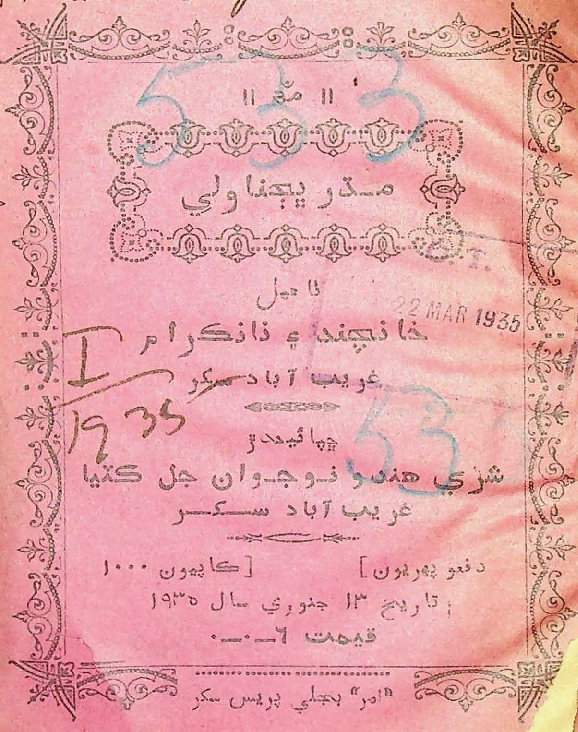 533
مڌر ڀڃناولي
ٺاهيل
خانچند ۽ نانڪرام
غريب آباد سکر
22 MAR 1935
I
1935
ڇپائيندڙ
53
شري هندو نوجوان جل ڪٽيا
غريب آباد سکر
دفعو پهريون] [ڪاپيون ١٠٠٠
تاريخ ١٣ جنوري سال ١٩٣٥
قيمت ٦-٠-٠
"امر" بجلي پريس سکر